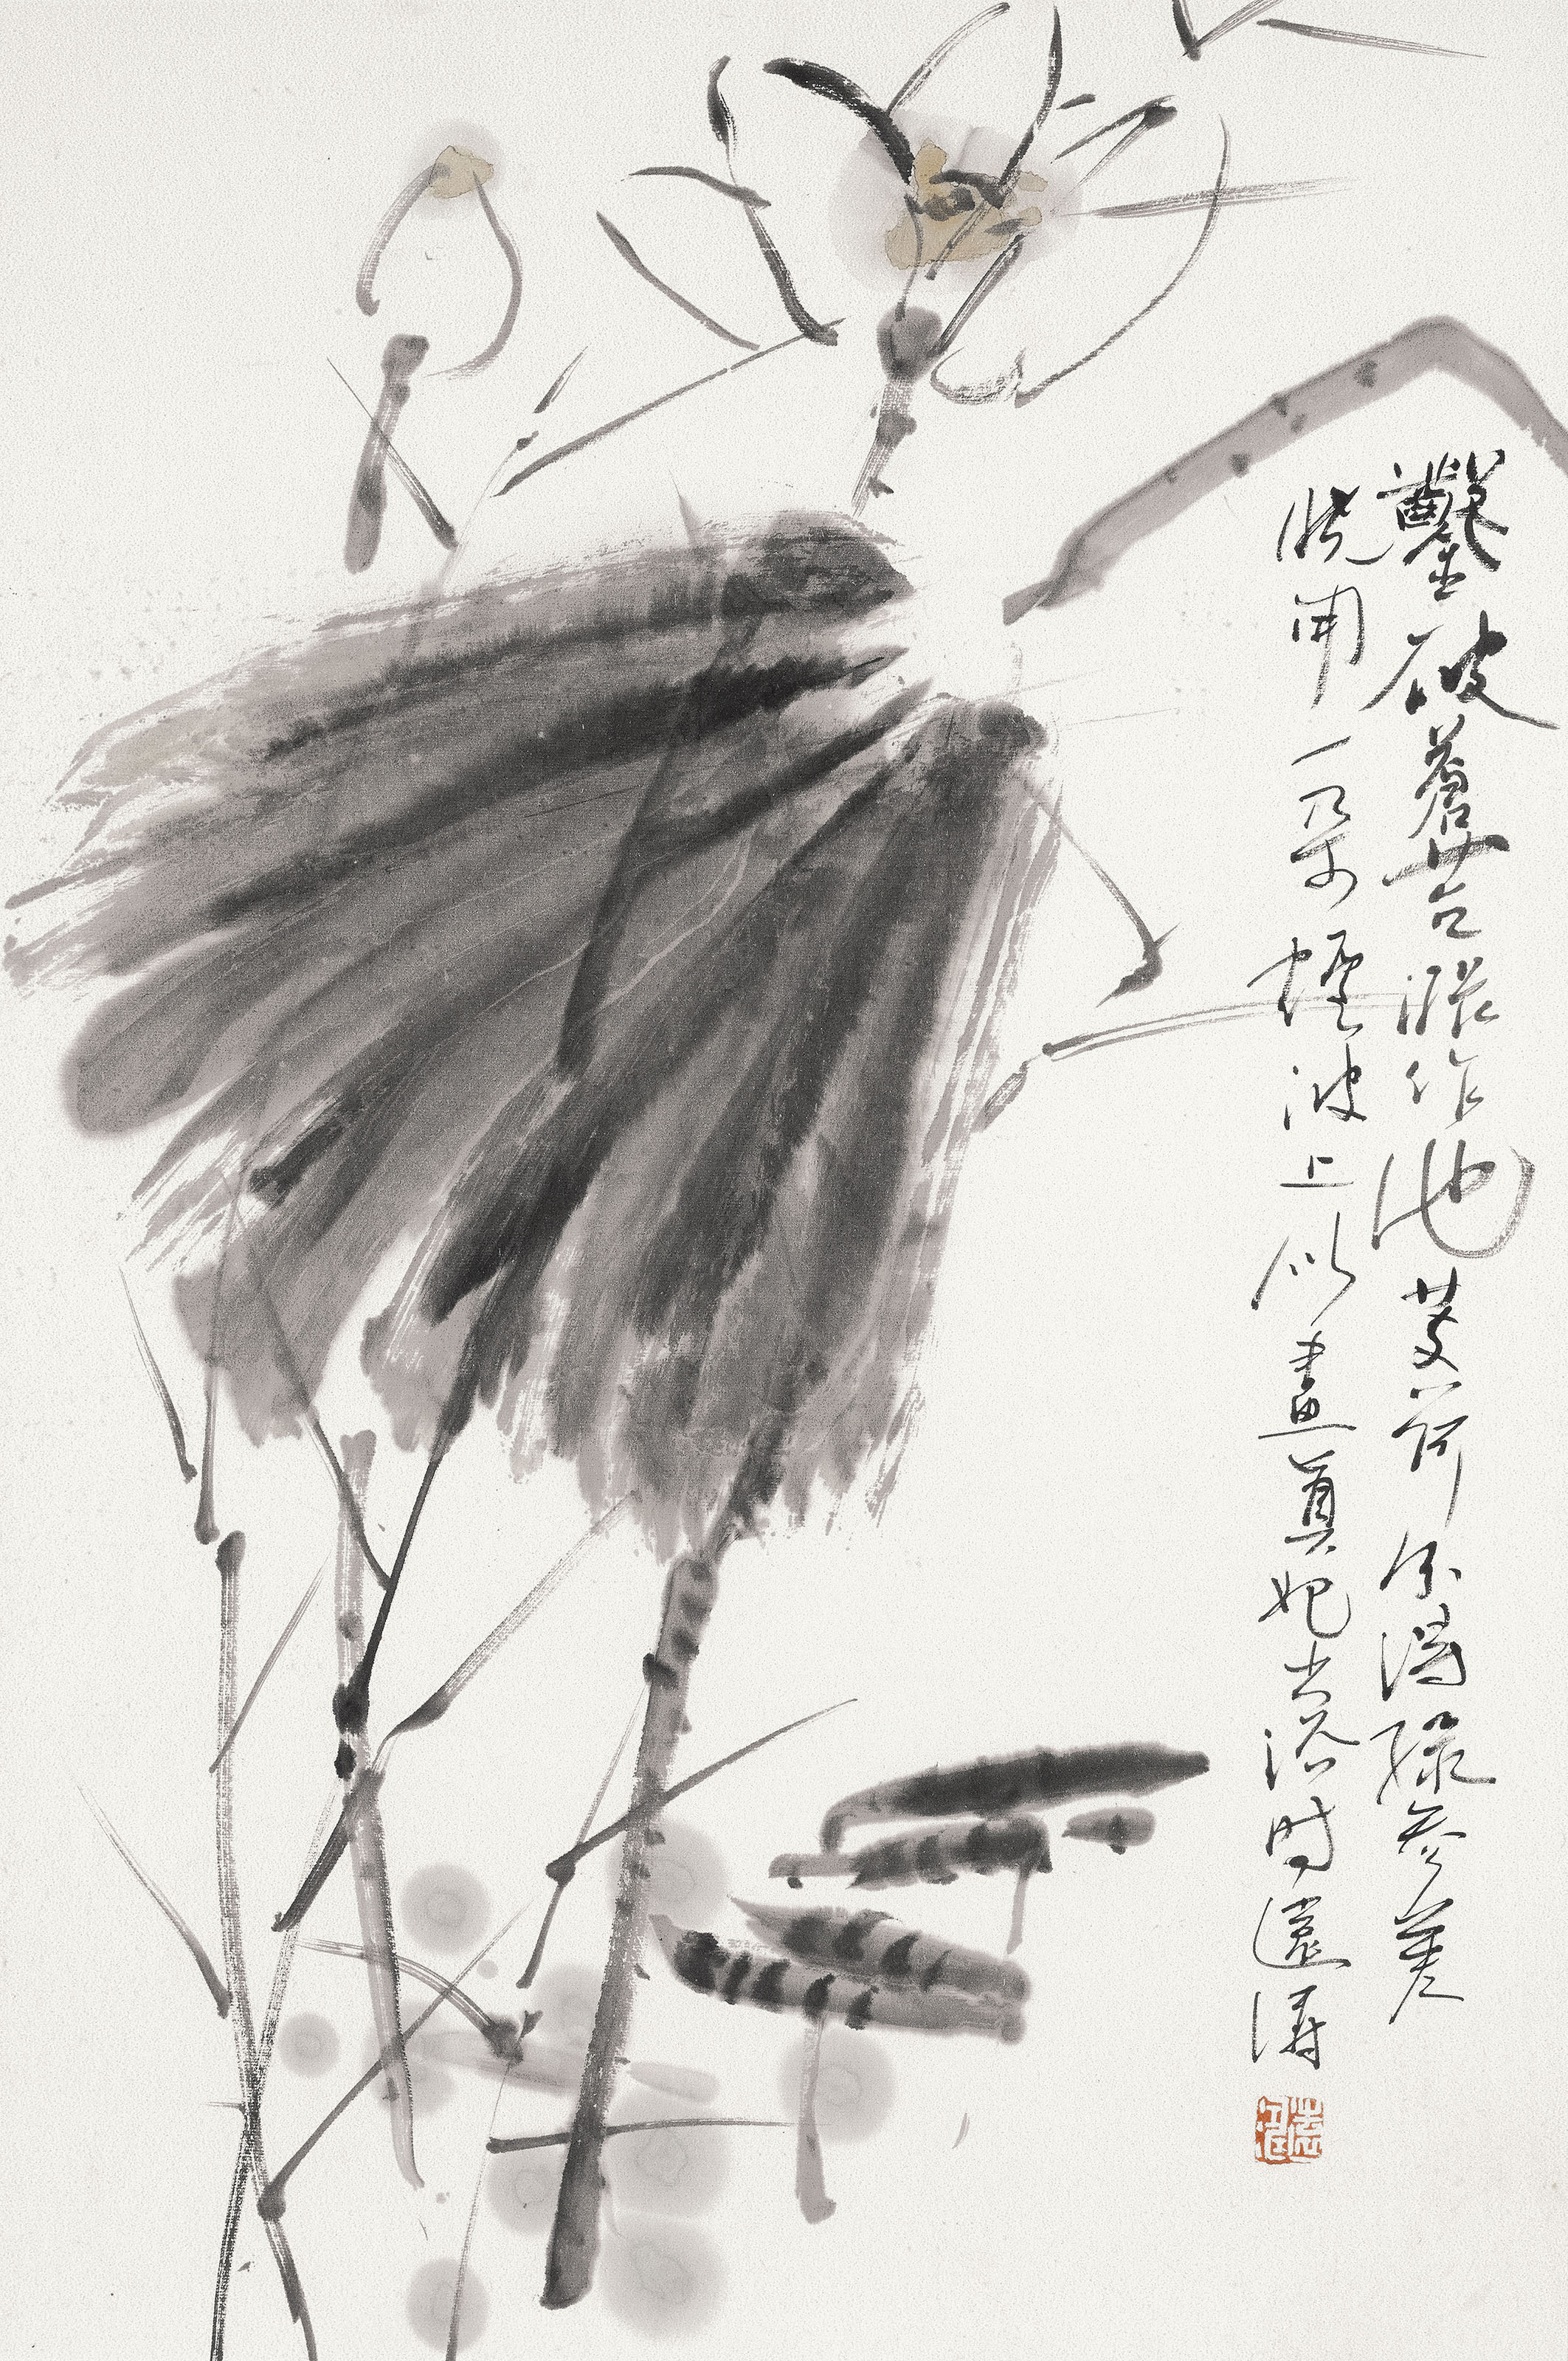 鑿破蒼苔漲作池芰荷分得綠參差
曉開一朵煙波上似畫真妃出浴時遠濤